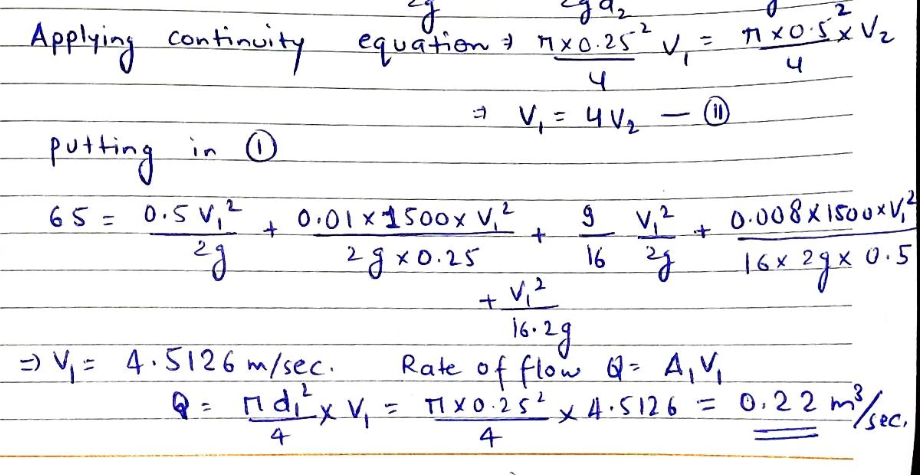 2g 2g d₂ g
Applying continuity equation ⇒ π×0.25²/4 V₁ = π×0.5²/4 × V₂
⇒ V₁ = 4V₂ — (II)
putting in (I)
65 = 0.5 V₁²/2g + 0.01×1500×V₁²/2g×0.25 + 9/16 V₁²/2g + 0.008×1500×V₁²/16×2g×0.5
+ V₁²/16.2g
⇒ V₁ = 4.5126 m/sec. Rate of flow Q = A₁V₁
Q = πd₁²/4 × V₁ = π×0.25²/4 × 4.5126 = 0.22 m³/sec.